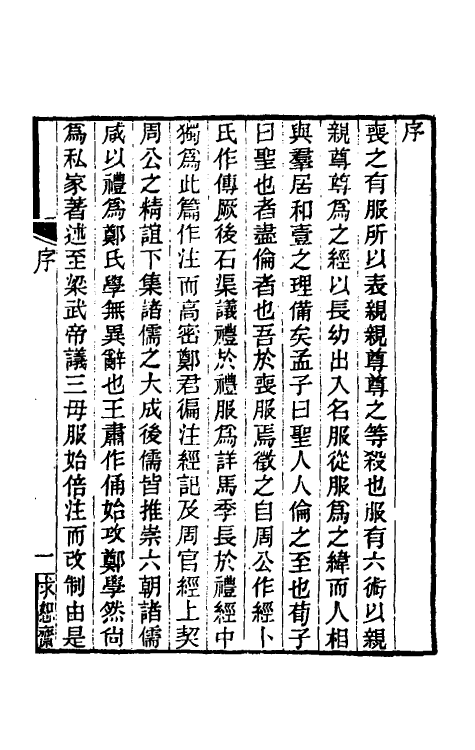 序
喪之有服所以表親親尊尊之等殺也服有六術以親
親尊尊爲之經以長幼出入名服從服爲之緯而人相
與羣居和壹之理備矣孟子曰聖人人倫之至也荀子
曰聖也者盡倫者也吾於喪服焉徵之自周公作經卜
氏作傳厥後石渠議禮於禮服爲詳馬季長於禮經中
獨爲此篇作注而高密鄭君徧注經記及周官經上契
周公之精誼下集諸儒之大成後儒皆推崇六朝諸儒
咸以禮爲鄭氏學無異辭也王肅作俑始攻鄭學然尙
爲私家著述至梁武帝議三母服始倍注而改制由是
序
一
求恕齋